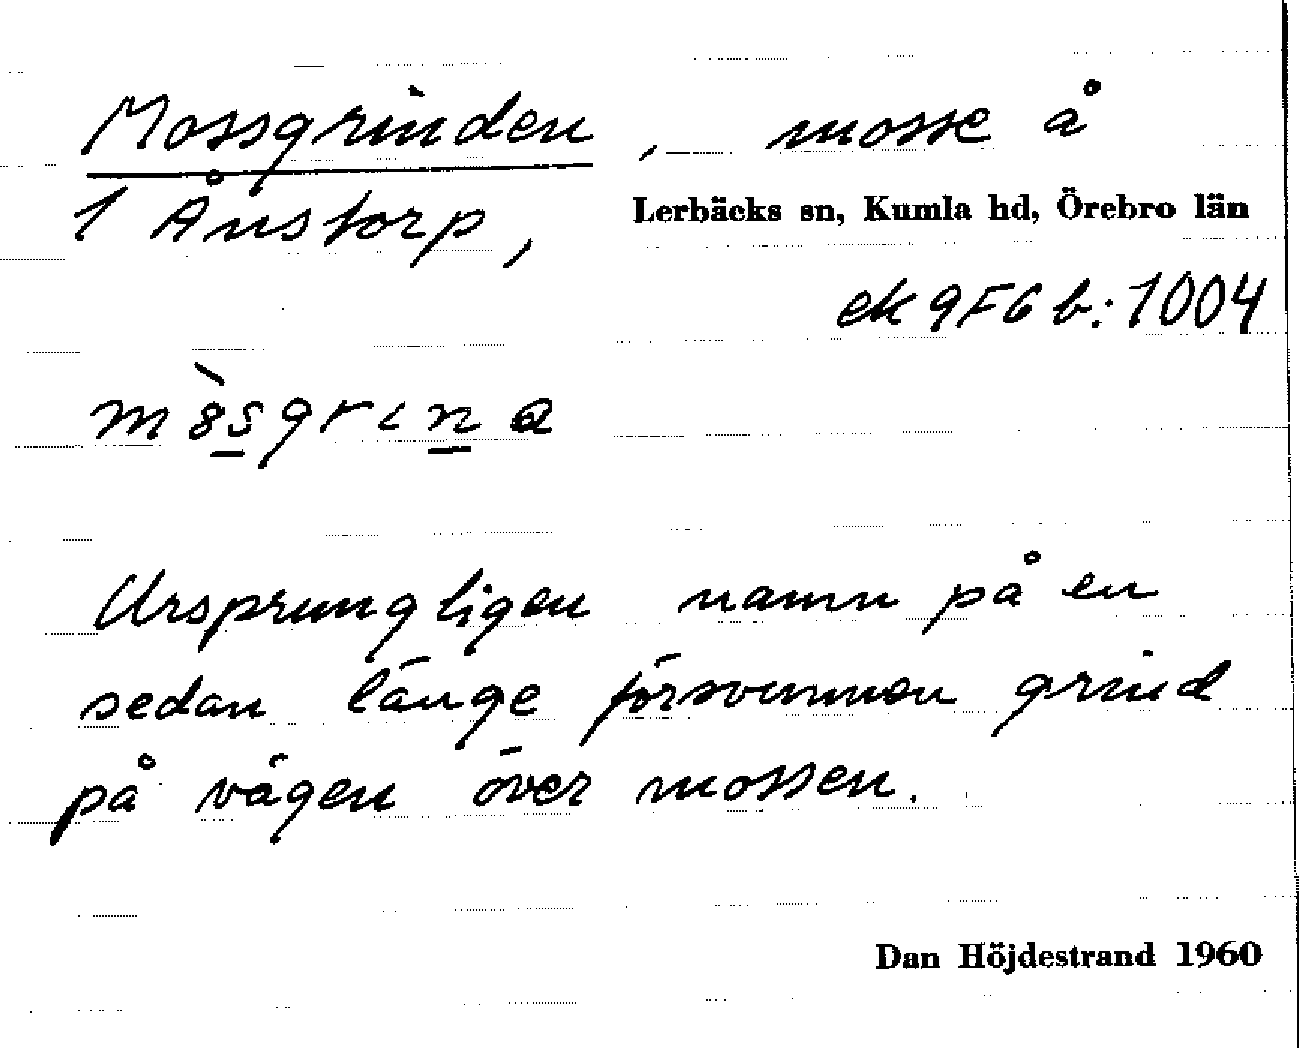 Mossgrinden, mosse å
1 Ånstorp, Lerbäcks sn, Kumla hd, Örebro län
ek 9F6b:1004
Ursprungligen namn på en
sedan länge försvunnen grind
på vägen över mossen.
Dan Höjdestrand 1960